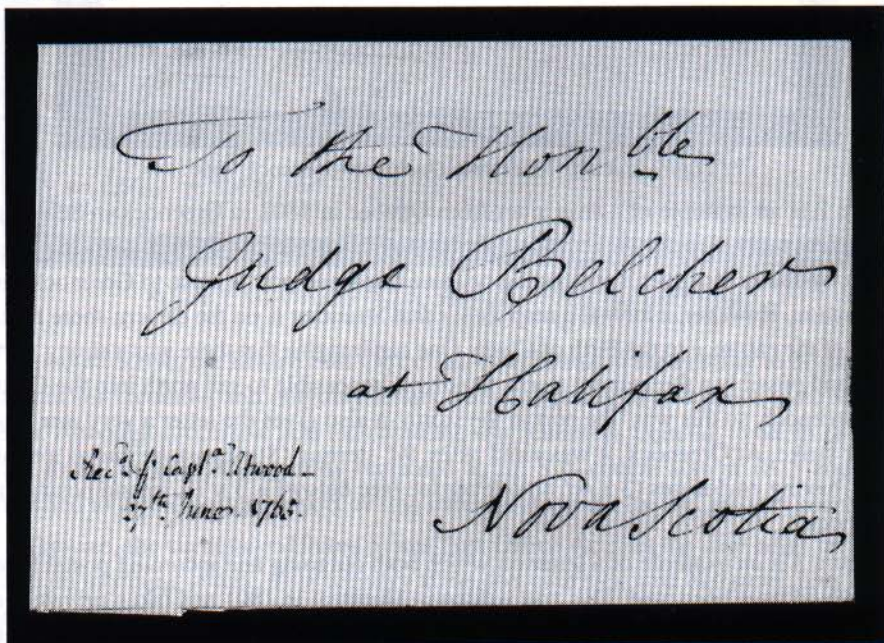 To the Hon ble
Judge Belcher
at Halifax
Nova Scotia
Rec d. Capt n. Atwood -
27th June. 1765.